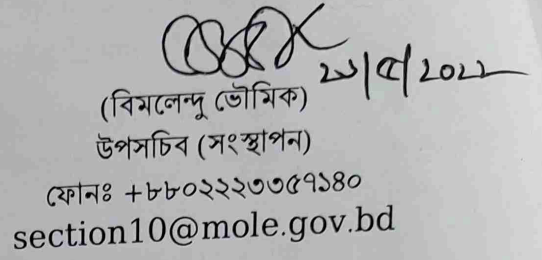 ২৩/৫/2022
(বিমলেন্দু ভৌমিক)
উপসচিব (সংস্থাপন)
ফোনঃ +৮৮০২২২৩৩৫৭১৪০
section10@mole.gov.bd